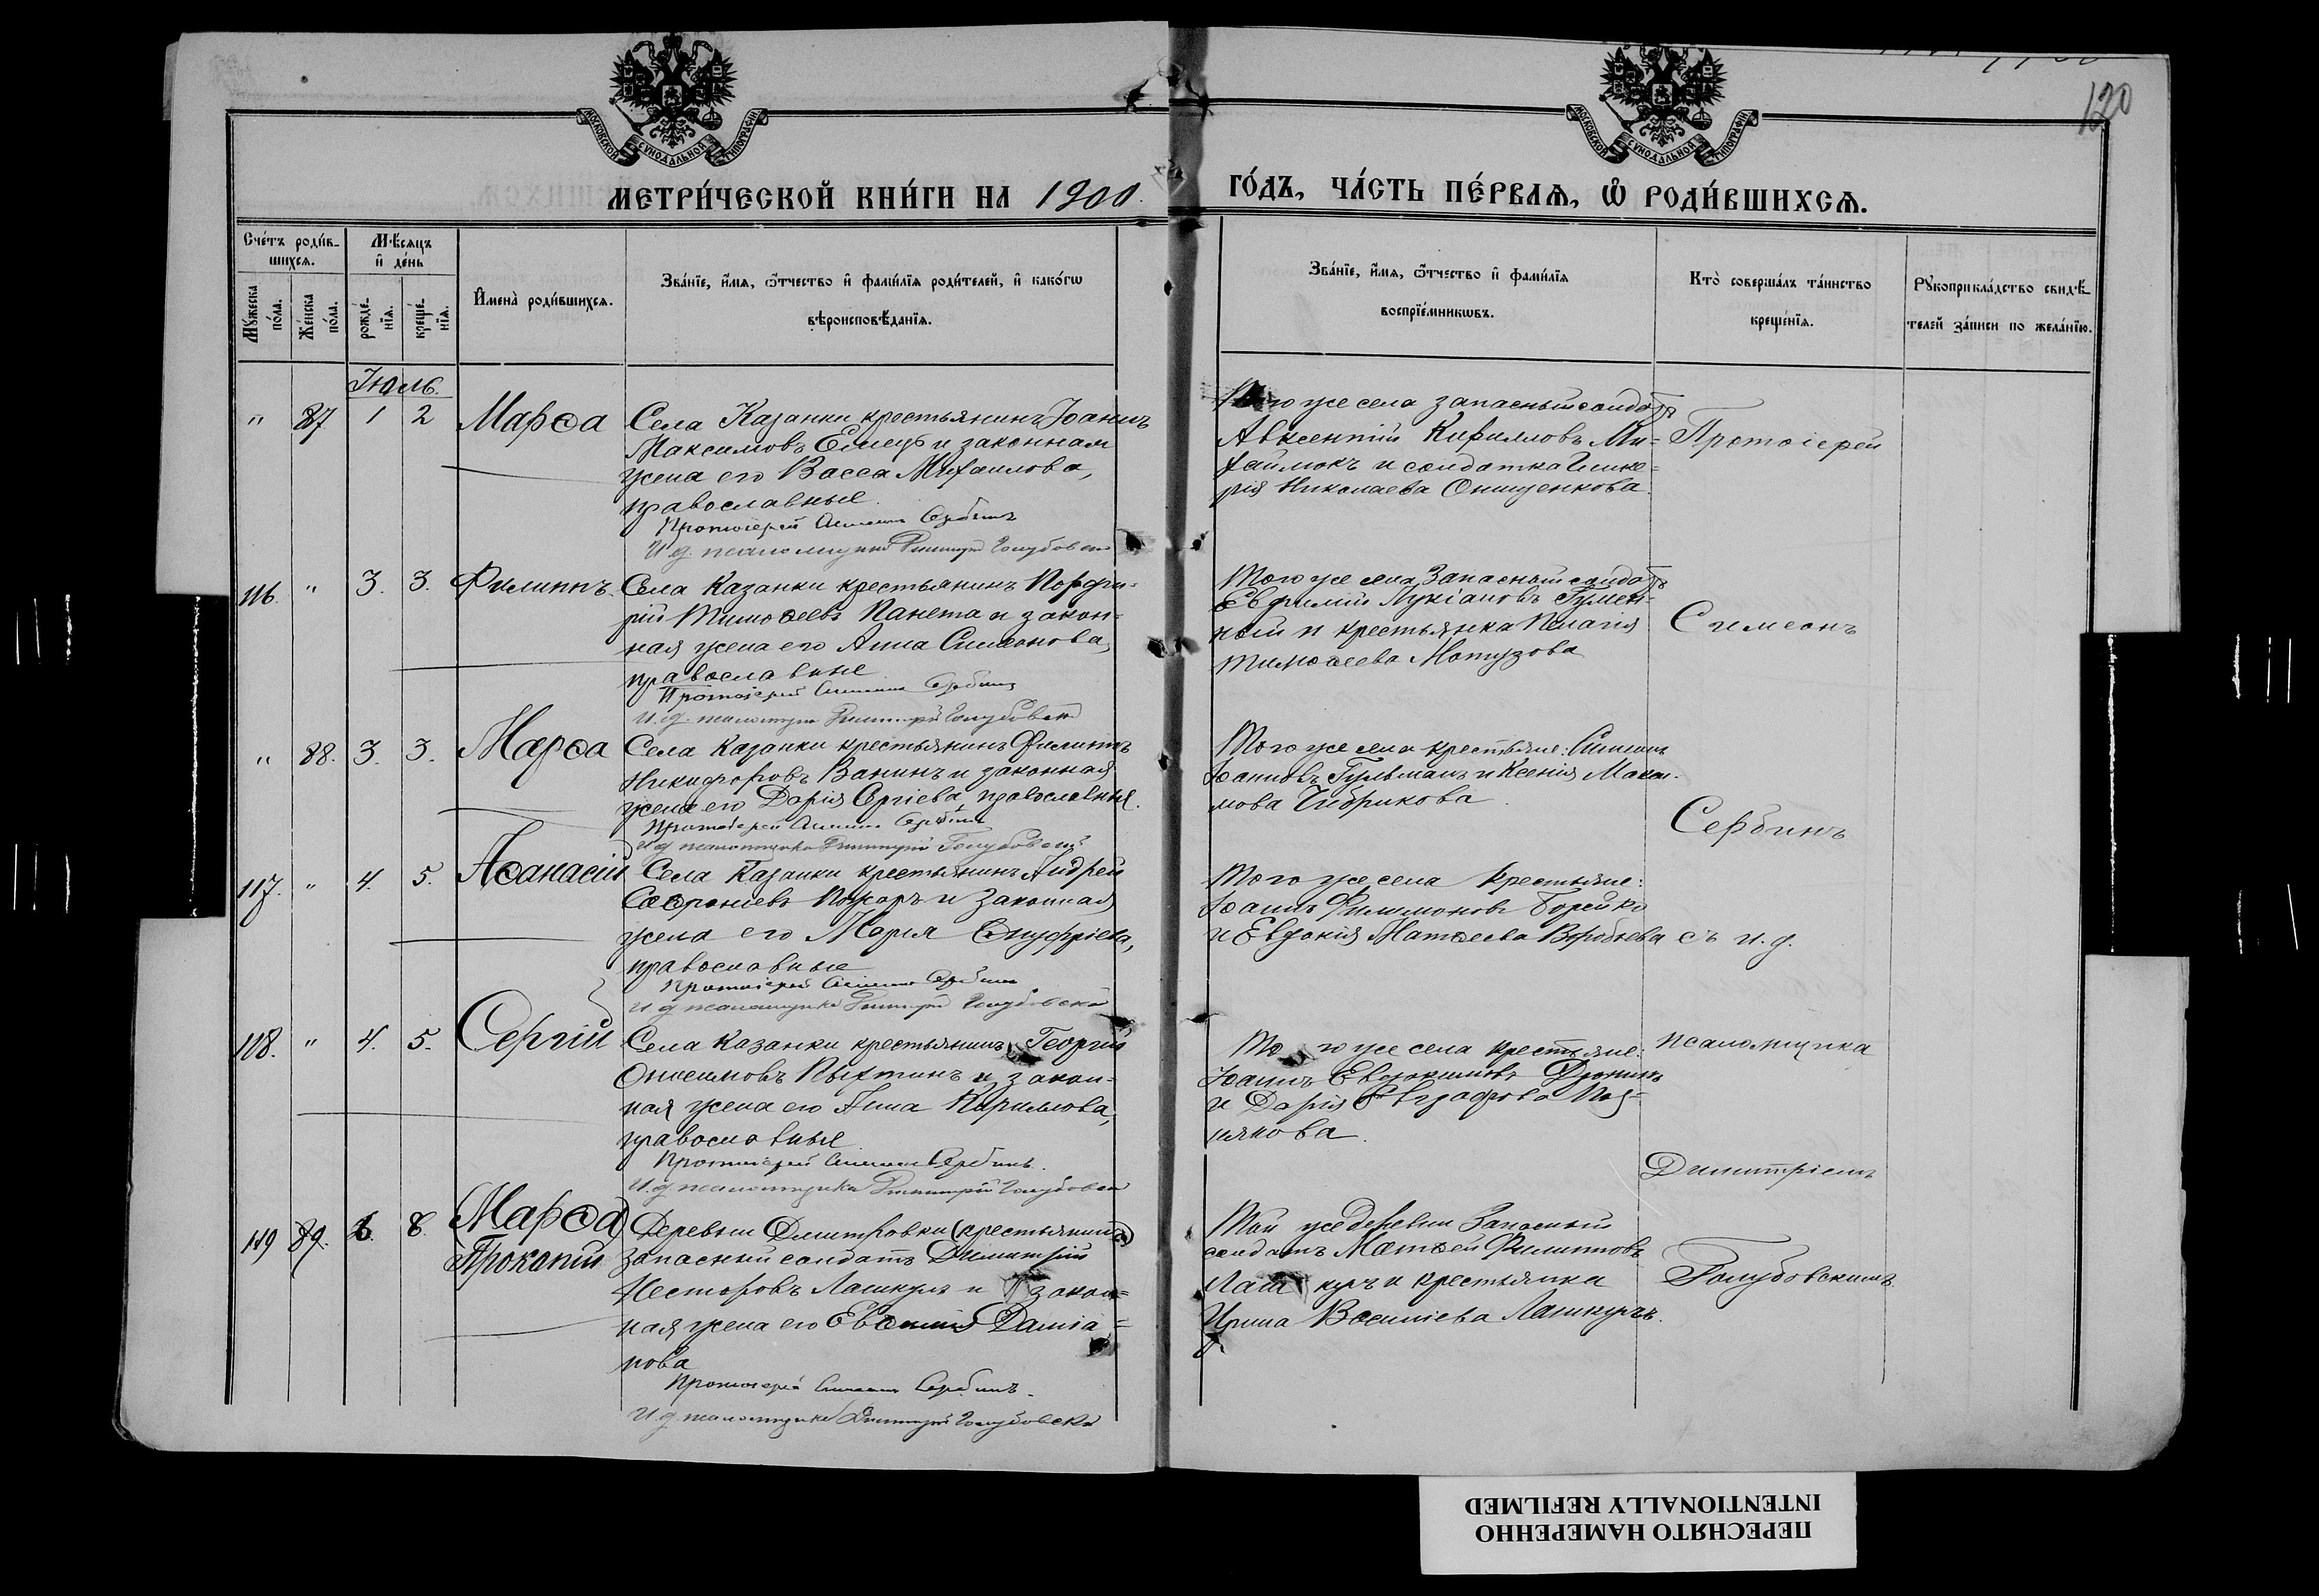 120
МОСКОВСКОЙ СУНОДАЛЬНОЙ ТИПОГРАФІИ
МОСКОВСКОЙ СУНОДАЛЬНОЙ ТИПОГРАФІИ
МЕТРИ́ЧЕСКОЙ КНИ́ГИ НА 1900.
ГО́ДЪ, ЧА́СТЬ ПЕ́РВАѦ, Ѡ҆ РОДИ́ВШИХСѦ.
Сче́тъ роди́в-
шихсѧ.
Мѣ́сѧцъ
и҆ де́нь
Мꙋ́жеска по́ла.
Же́нска по́ла.
рожде́-
нїѧ.
креще́-
нїѧ.
И҆мена̀ роди́вшихсѧ.
Зва́нїе, и҆́мѧ, ѻ҆́тчество и҆ фамилїѧ роди́телей, и҆ како́гѡ
вѣроисповѣ́данїѧ.
Зва́нїе, и҆́мѧ, ѻ҆́тчество и҆ фамилїѧ
воспрїе́мникѡвъ.
Кто̀ соверша́лъ та́инство
креще́нїѧ.
Рꙋкоприкла́дство свидѣ́-
телей за́писи по жела́нїю.
Іюль.
" 87 1 2 Марѳа
Села Казанки крестьянинъ Іоаннъ
Максимовъ и законная
жена его Васса Михаилова,
православные.
Протоіерей Симеонъ Сербинъ
И. д. псаломщика Димитрій Голубовскій
Того же села запасный солдатъ
Авксентій Кирилловъ Ми-
хайлюкъ и солдатка Глике-
рія Николаева Онищенкова.
Протоіерей
116. " 3. 3. Филиппъ.
Села Казанки крестьянинъ Порфи-
рій Тимоѳеевъ Панета и закон-
ная жена его Анна Симеонова,
православные
Протоіерей Симеонъ Сербинъ
И. д. псаломщика Димитрій Голубовскій
Того же села Запасный солдатъ
Евфимій Лукіановъ Гумен-
ный и крестьянка Пелагія
Тимоѳеева Мотузова
Симеонъ
" 88. 3. 3. Марѳа
Села Казанки крестьянинъ Филиппъ
Никифоровъ Ванинъ и законная
жена его Дарія Сергіева, православные.
Протоіерей Симеонъ Сербинъ
И. д. псаломщика Димитрій Голубовскій
Того же села крестьяне: Симеонъ
Іоанновъ Гульманъ и Ксенія Макси-
мова Чибрикова.
Сербинъ
117. " 4. 5. Аѳанасій
Села Казанки крестьянинъ Андрей
Софроніевъ Пожаръ и законная
жена его Марія Онуфріева,
православные
Протоіерей Симеонъ Сербинъ
И. д. псаломщика Димитрій Голубовскій
Того же села крестьяне:
Іоаннъ Филимоновъ Борейко
и Евдокія Матѳеева Воробьева
съ и. д.
118. " 4. 5. Сергій
Села Казанки крестьянинъ Георгій
Онисимовъ Пыхтинъ и закон-
ная жена его Анна Кириллова,
православные
Протоіерей Симеонъ Сербинъ.
И. д. псаломщика Димитрій Голубовскій
Того же села крестьяне:
Іоаннъ Евдокимовъ
и Дарія Евграфова Поз-
някова.
псаломщика
Димитріемъ
119 89. 6. 8. (Марѳа)
Прокопій
Деревни Дмитровки (крестьянинъ)
запасный солдатъ Димитрій
Несторовъ Лашкулъ и закон-
ная жена его Евѳимія Даміа-
нова
Протоіерей Симеонъ Сербинъ.
И. д. псаломщика Димитрій Голубовскій
Той же деревни Запасный
солдатъ Матѳей Филипповъ
и крестьянка
Ирина Василіева
Голубовскимъ.
ПЕРЕСНЯТО НАМЕРЕННО
INTENTIONALLY REFILMED